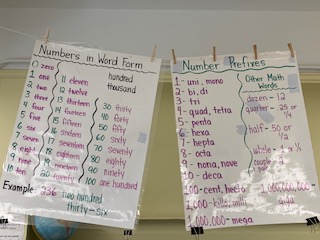 Numbers in Word Form
0 zero
1 one
2 two
3 three
4 four
5 five
6 six
7 seven
8 eight
9 nine
10 ten
11 eleven
12 twelve
13 thirteen
14 fourteen
15 fifteen
16 sixteen
17 seventeen
18 eighteen
19 nineteen
20 twenty
hundred
thousand
30 thirty
40 forty
50 fifty
60 sixty
70 seventy
80 eighty
90 ninety
100 one hundred
Example: 236 two hundred
thirty-six
Number Prefixes
1- uni, mono
2- bi, di
3- tri
4- quad, tetra
5- penta
6- hexa
7- hepta
8- octa
9- nona, nove
10- deca
100- cent, hecta
1,000- kilo, milli
1,000,000- mega
1,000,000,000-
giga
Other Math
Words
dozen - 12
quarter - 25 or
1/4
half - 50 or
1/2
couple -